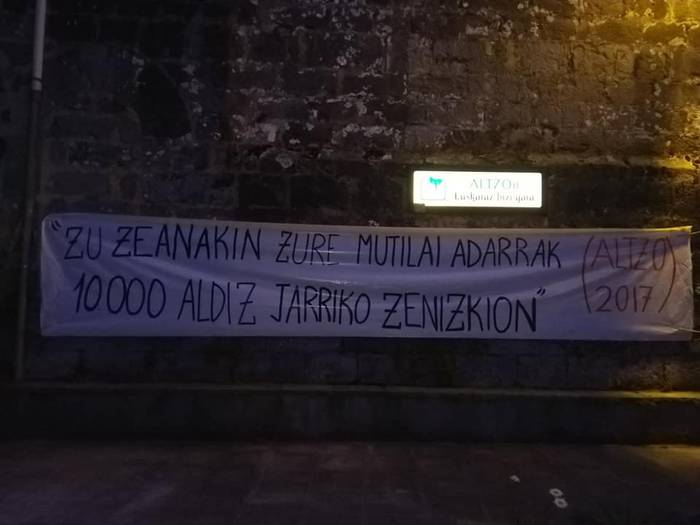 ALTZOn
Euskaraz bizi gara
"ZU ZEANAKIN ZURE MUTILAI ADARRAK (ALTZO
10000 ALDIZ JARRIKO ZENIZKION" 2017)